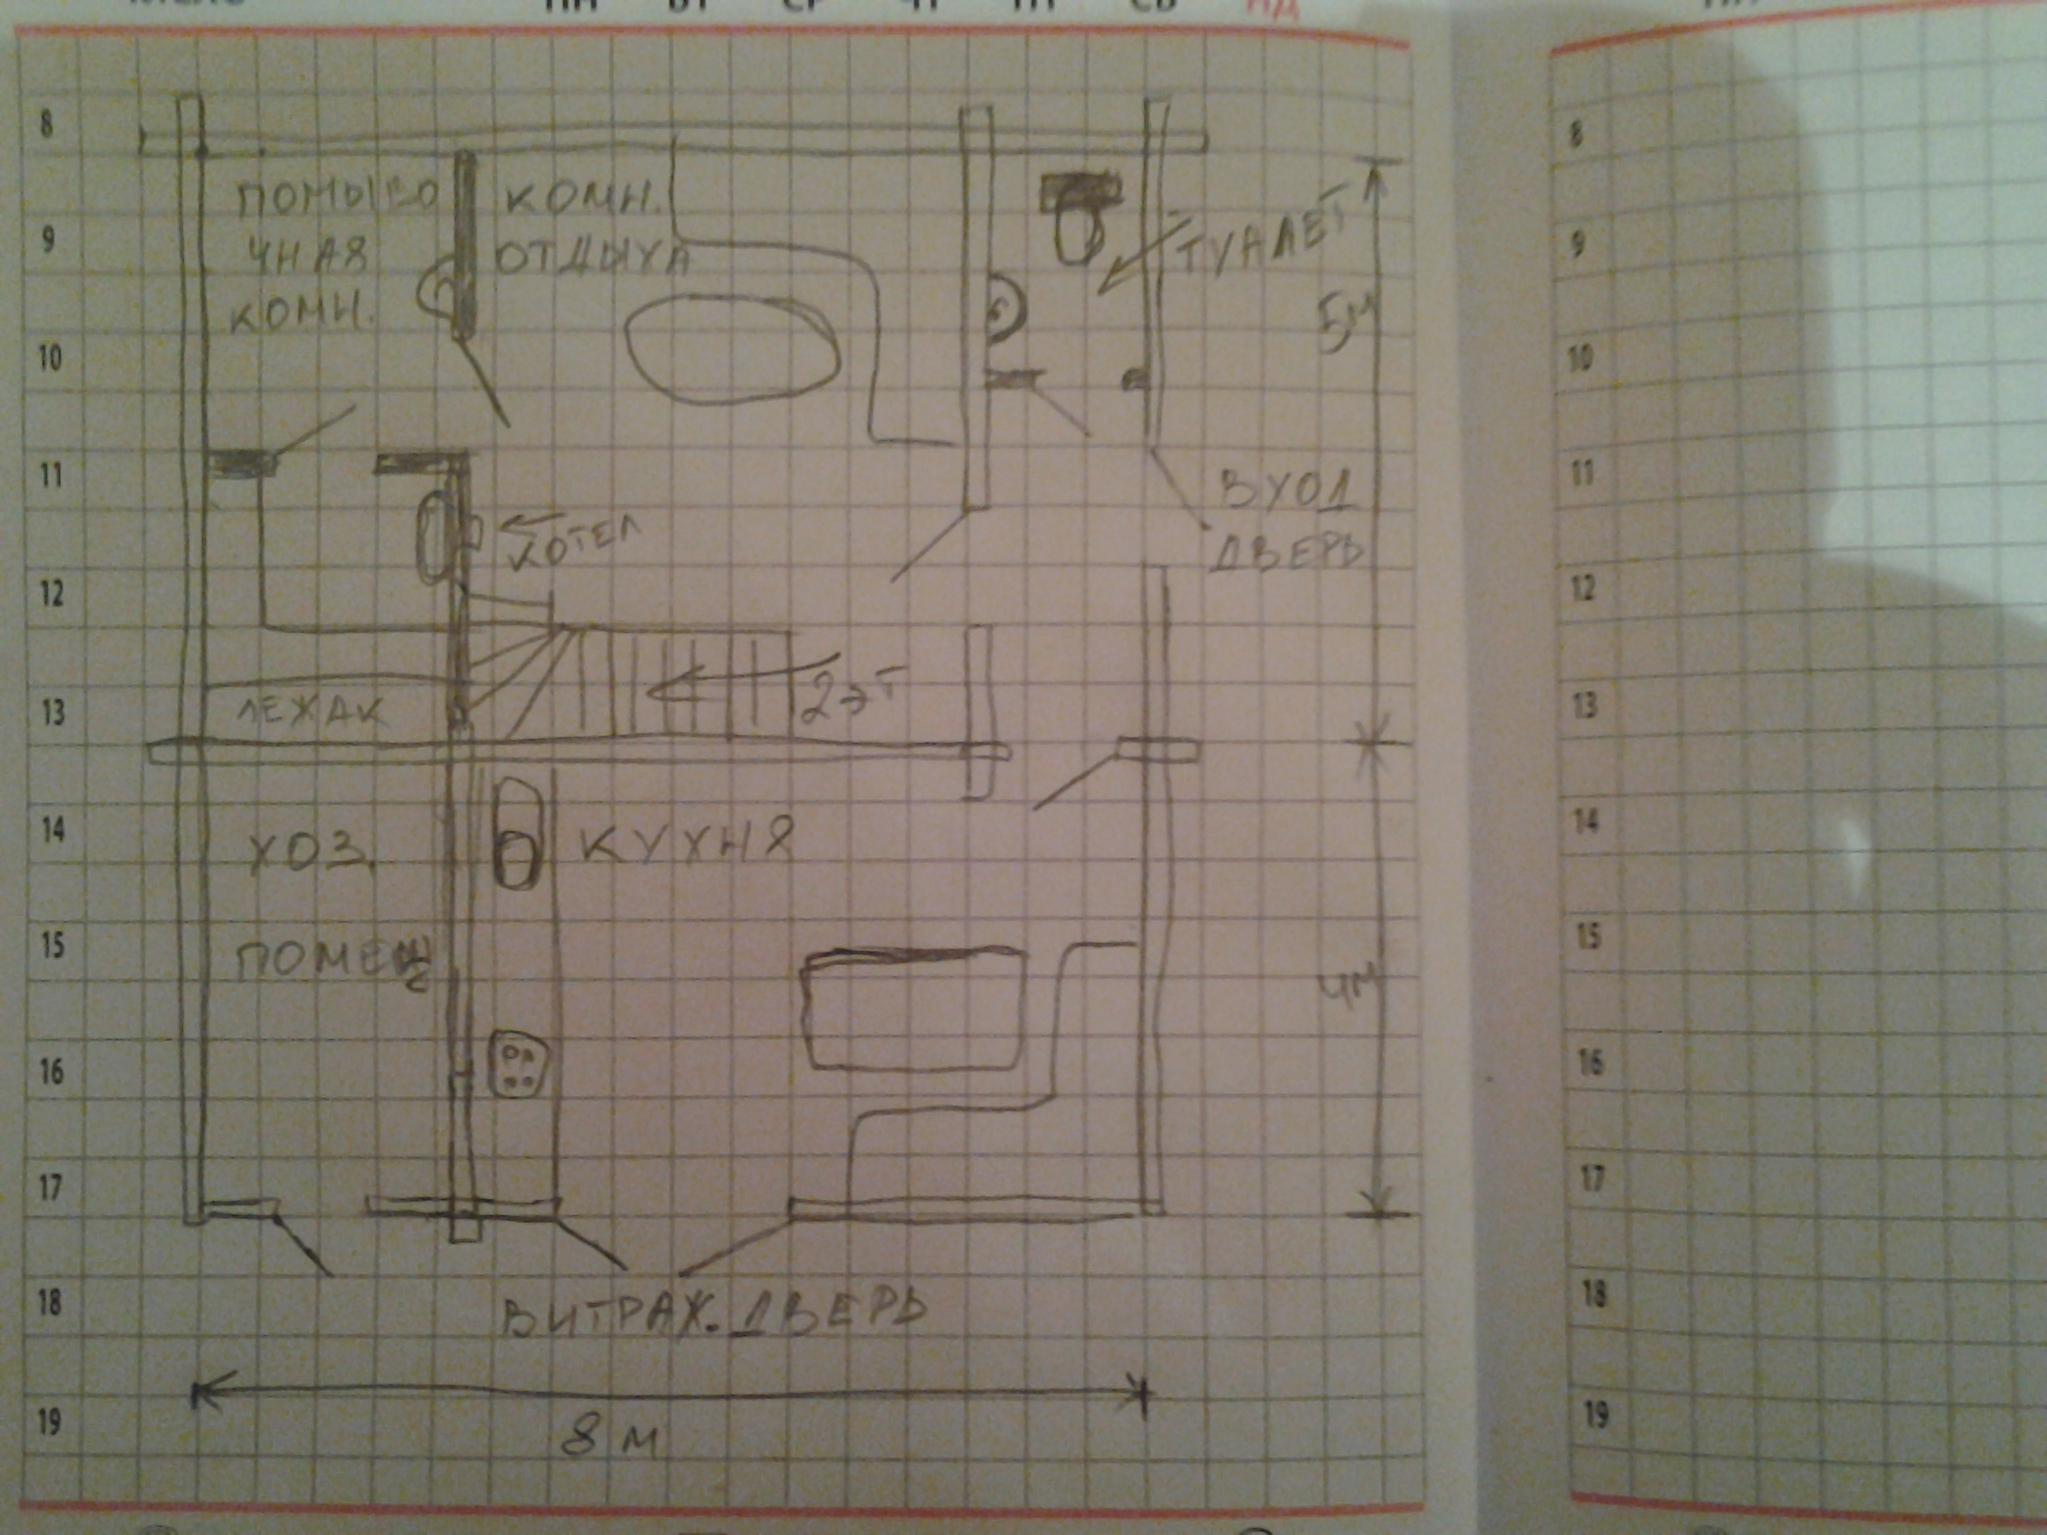 ПН ВТ СР ЧТ ПТ СБ НД
8
9
10
11
12
13
14
15
16
17
18
19
ПОМЫВО
ЧНАЯ
КОМН.
КОМН.
ОТДЫХА
ТУАЛЕТ
5м
ВХОД
ДВЕРЬ
КОТЕЛ
2 эт
ЛЕЖАК
ХОЗ.
ПОМЕЩ
КУХНЯ
4м
ВИТРАЖ. ДВЕРЬ
8 м
8
9
10
11
12
13
14
15
16
17
18
19